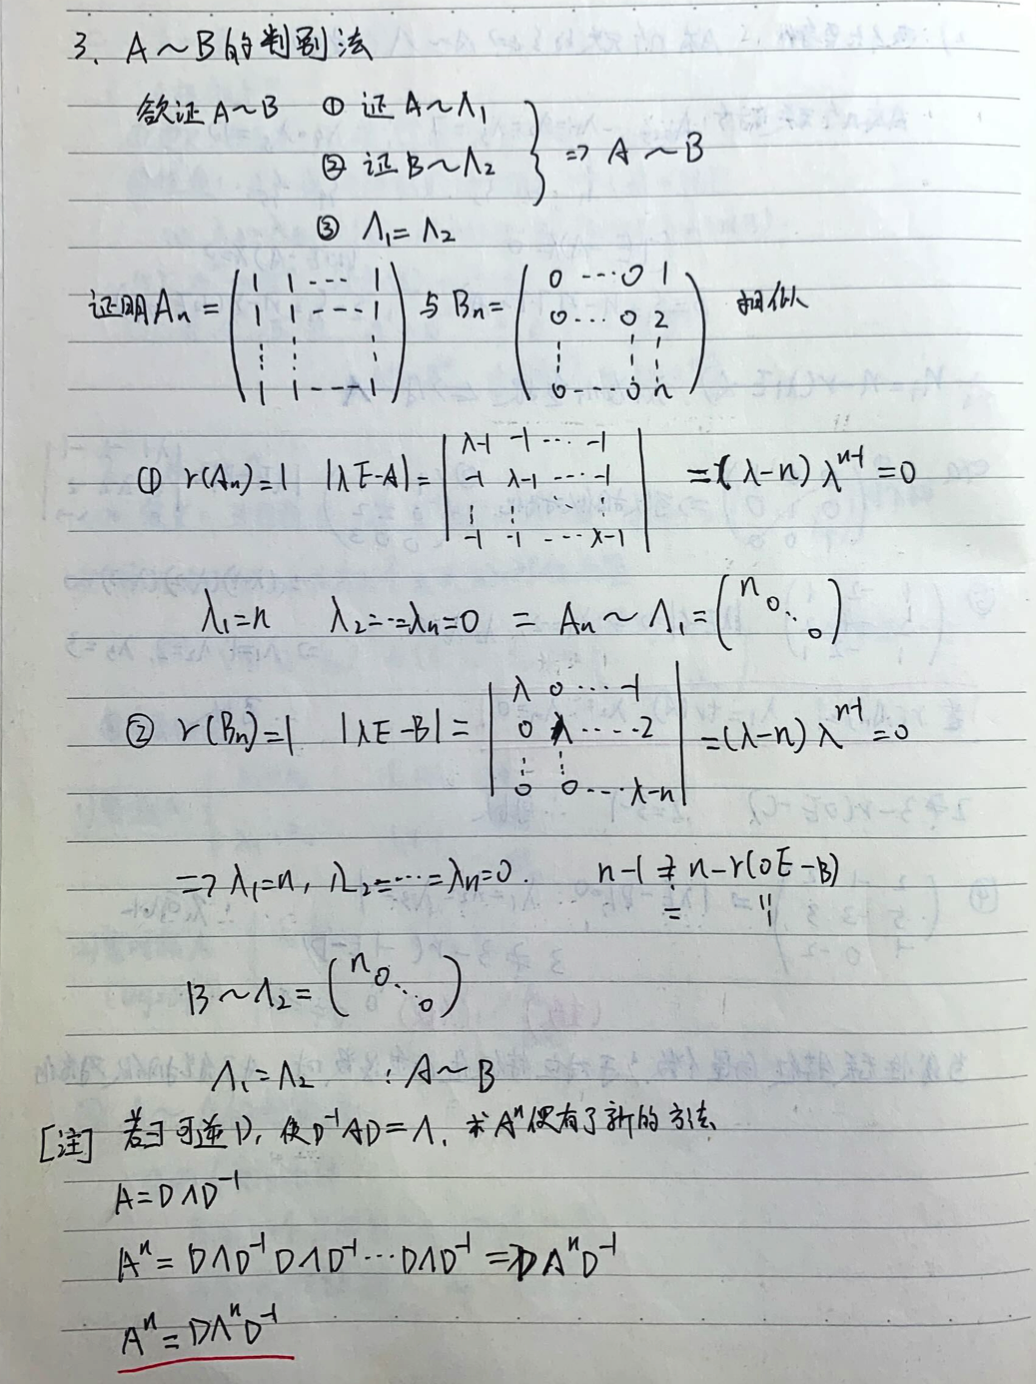 3. A～B的判别法
欲证A～B ① 证A～Λ₁
② 证B～Λ₂ } => A～B
③ Λ₁=Λ₂
证明Aₙ= ( 1 1 --- 1 ; 1 1 --- 1 ; ⋮ ⋮ ⋮ ; 1 1 --- 1 ) 与Bₙ= ( 0 ··· 0 1 ; 0 ... 0 2 ; ⋮ ⋮ ⋮ ; 0 --- 0 n ) 相似
① r(Aₙ)=1 |λE-A|= | λ-1 -1 ··· -1 ; -1 λ-1 ··· -1 ; ⋮ ⋮ ⋮ ; -1 -1 ··· λ-1 | =(λ-n)λⁿ⁻¹=0
λ₁=n λ₂=--=λₙ=0 = Aₙ～Λ₁= ( n 0 ⋱ 0 )
② r(Bₙ)=1 |λE-B|= | λ 0 ··· -1 ; 0 λ ··· -2 ; ⋮ ⋮ ; 0 0 --- λ-n | =(λ-n)λⁿ⁻¹=0
=> λ₁=n, λ₂=···=λₙ=0. n-1 ≟ n-r(0E-B)
= 〃
B～Λ₂= ( n 0 ⋱ 0 )
Λ₁=Λ₂ ∴A～B
[注] 若∃可逆D, 使D⁻¹AD=Λ, 求Aⁿ便有了新的方法
A=DΛD⁻¹
Aⁿ=DΛD⁻¹DΛD⁻¹···DΛD⁻¹=DΛⁿD⁻¹
Aⁿ=DΛⁿD⁻¹